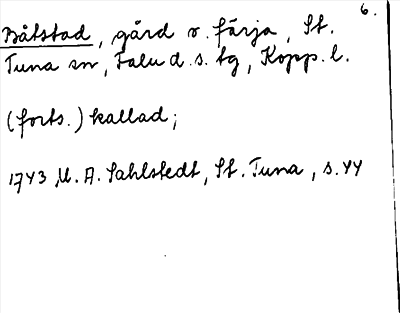 6.
Båtstad, gård o. färja, St.
Tuna sn, Falu d.s. tg, Kopp. l.
(forts.) kallad;
1743 M. A. Sahlstedt, St. Tuna, s. 44